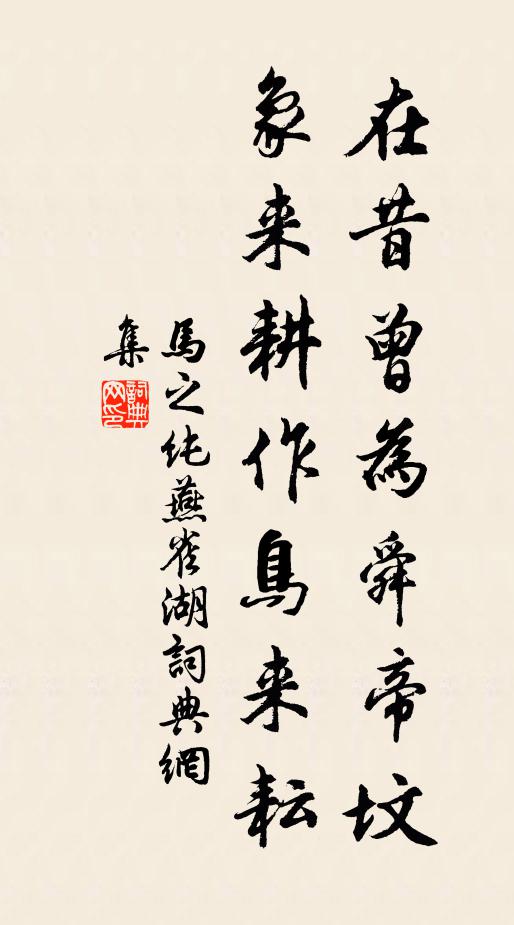 在昔曾為舜帝墳
象来耕作鳥来耘
馬之純燕雀湖詞典網
集
詞典
网印